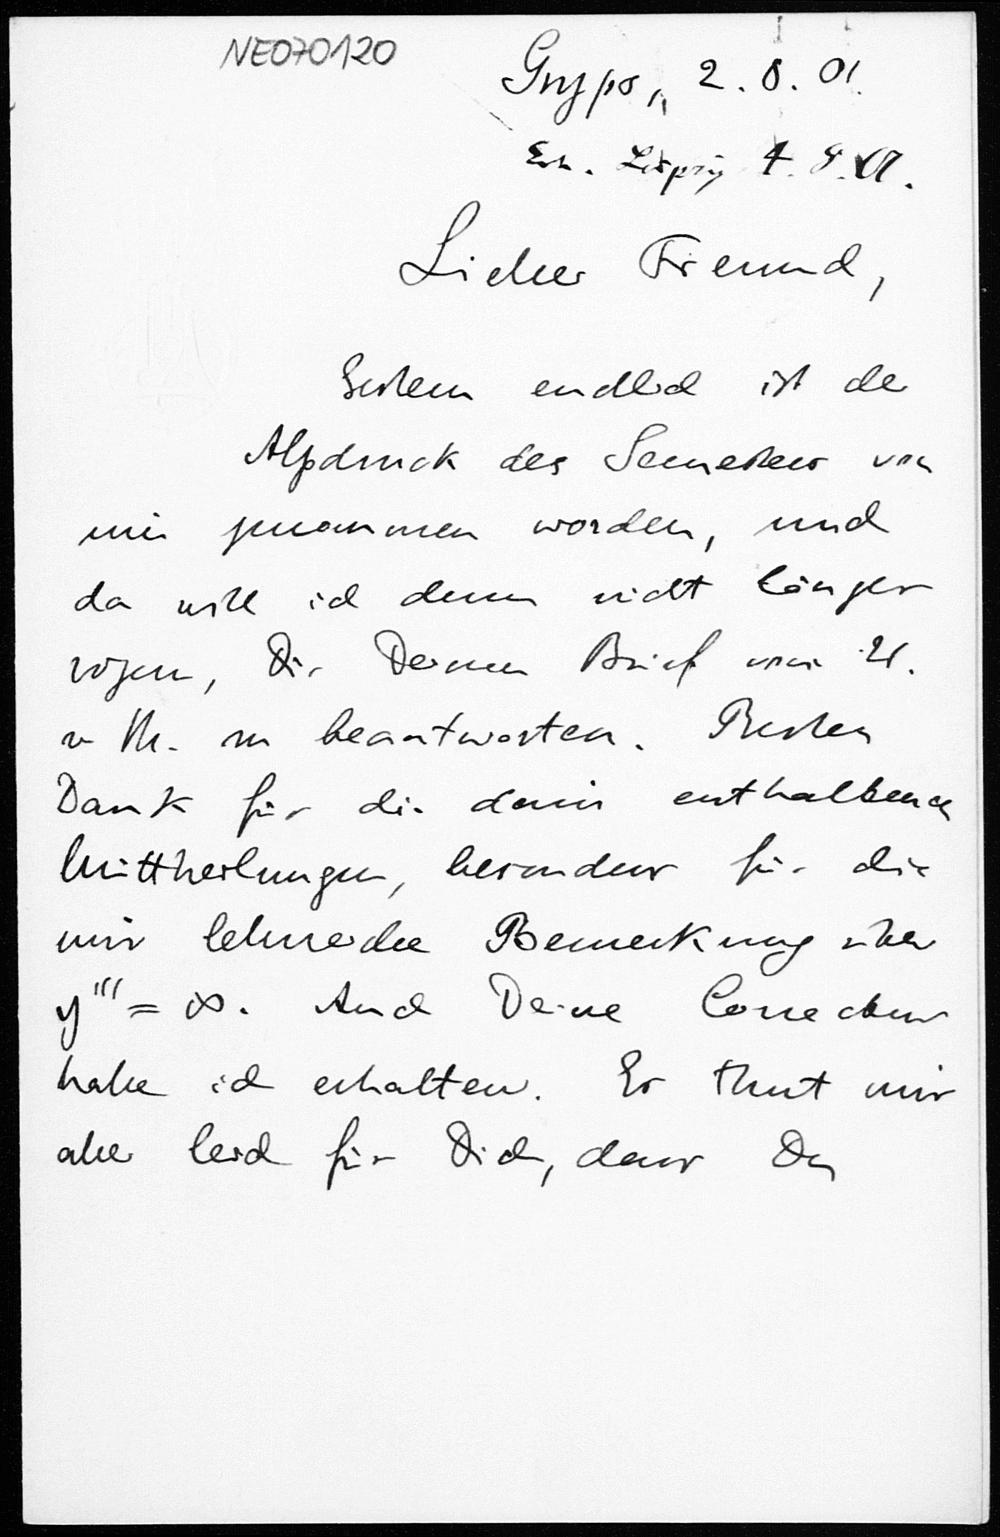 NE070120
Gryps, 2.8.01.
Erh. Leipzig 4.8.01.
Lieber Freund,
Gestern endlich ist der
Alpdruck des Semesters von
mir genommen worden, und
da will ich denn nicht länger
zögern, Dir Deinen Brief vom 21.
v. M. zu beantworten. Besten
Dank für die darin enthaltenen
Mittheilungen, besonders für die
mir lehrreiche Bemerkung über
y''' = ∞. Auch Deine Correctur
habe ich erhalten. Es thut mir
aber leid für Dich, dass Du